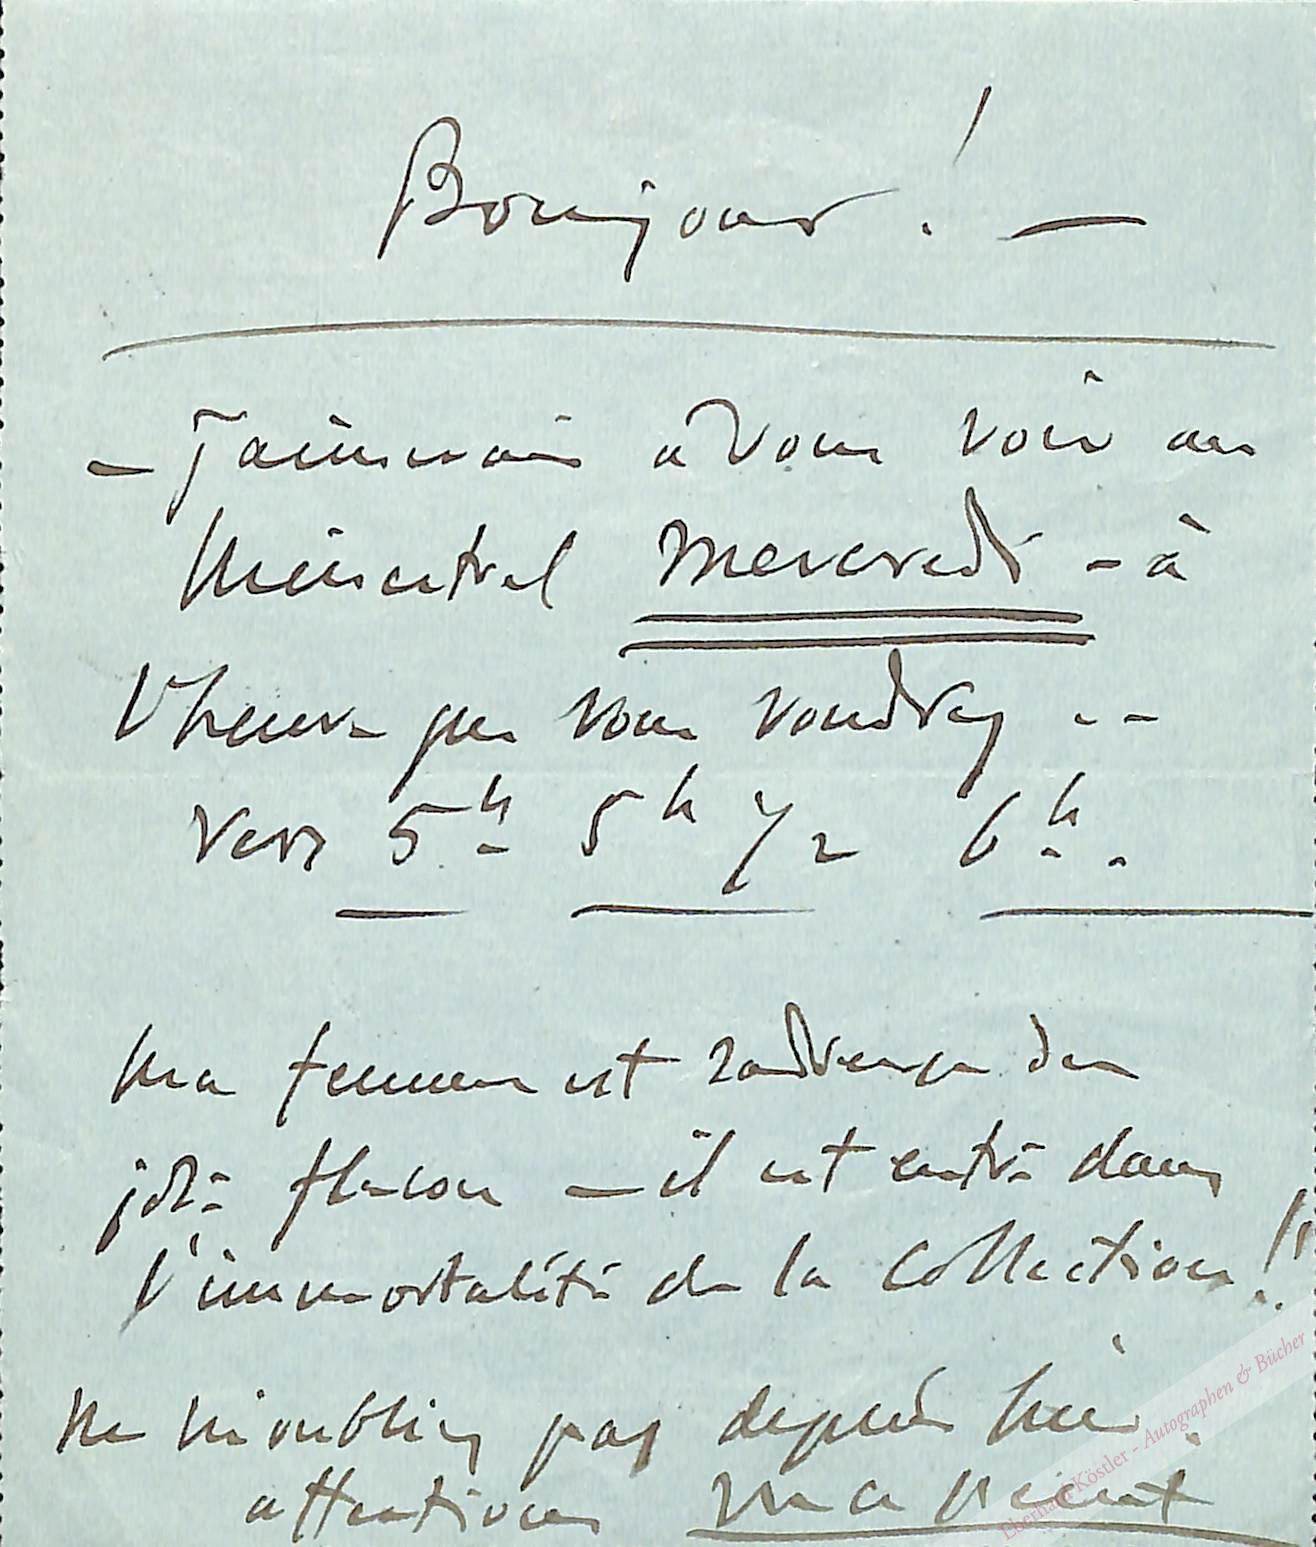 Bonjour ! —
— J'aimerais à vous voir au
Ménestrel mercredi - à
l'heure que vous voudrez --
vers 5h 5h 1/2 6h.
Ma femme est du
joli flacon — il est entré dans
l'immortalité de la Collection !!
Ne m'oubliez pas depuis hier.
attention
Eberhard Köstler - Autographen & Bücher